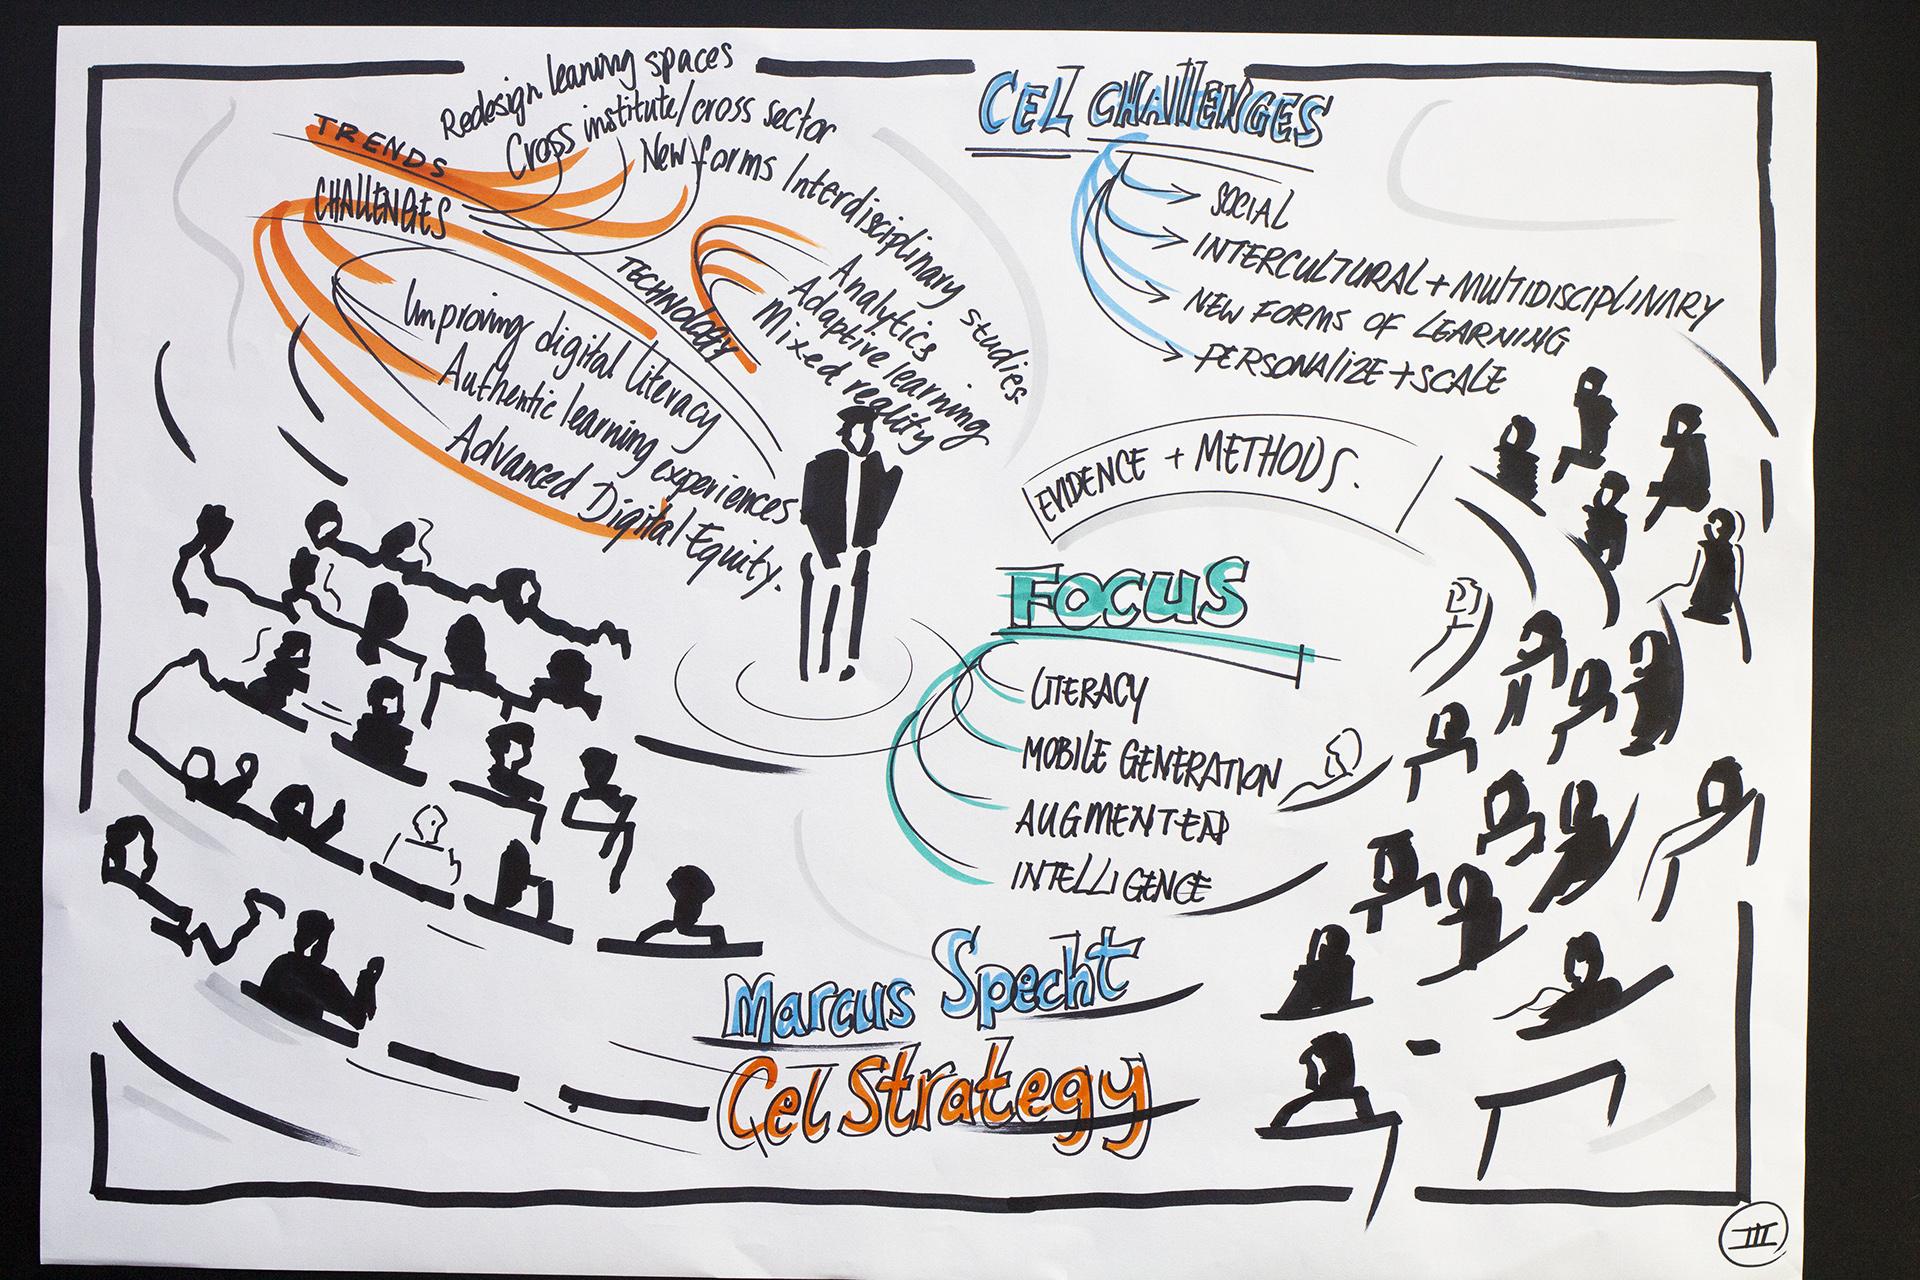 TRENDS
Redesign learning spaces
Cross institute/cross sector
New forms Interdisciplinary studies.
CHALLENGES
Improving digital literacy
Authentic learning experiences
Advanced Digital Equity.
TECHNOLOGY
Analytics
Adaptive learning
Mixed reality
CEL CHALLENGES
SOCIAL
INTERCULTURAL + MULTIDISCIPLINARY
NEW FORMS OF LEARNING
PERSONALIZE + SCALE
EVIDENCE + METHODS.
FOCUS
LITERACY
MOBILE GENERATION
AUGMENTED
INTELLIGENCE
Marcus Specht
Cel Strategy
III